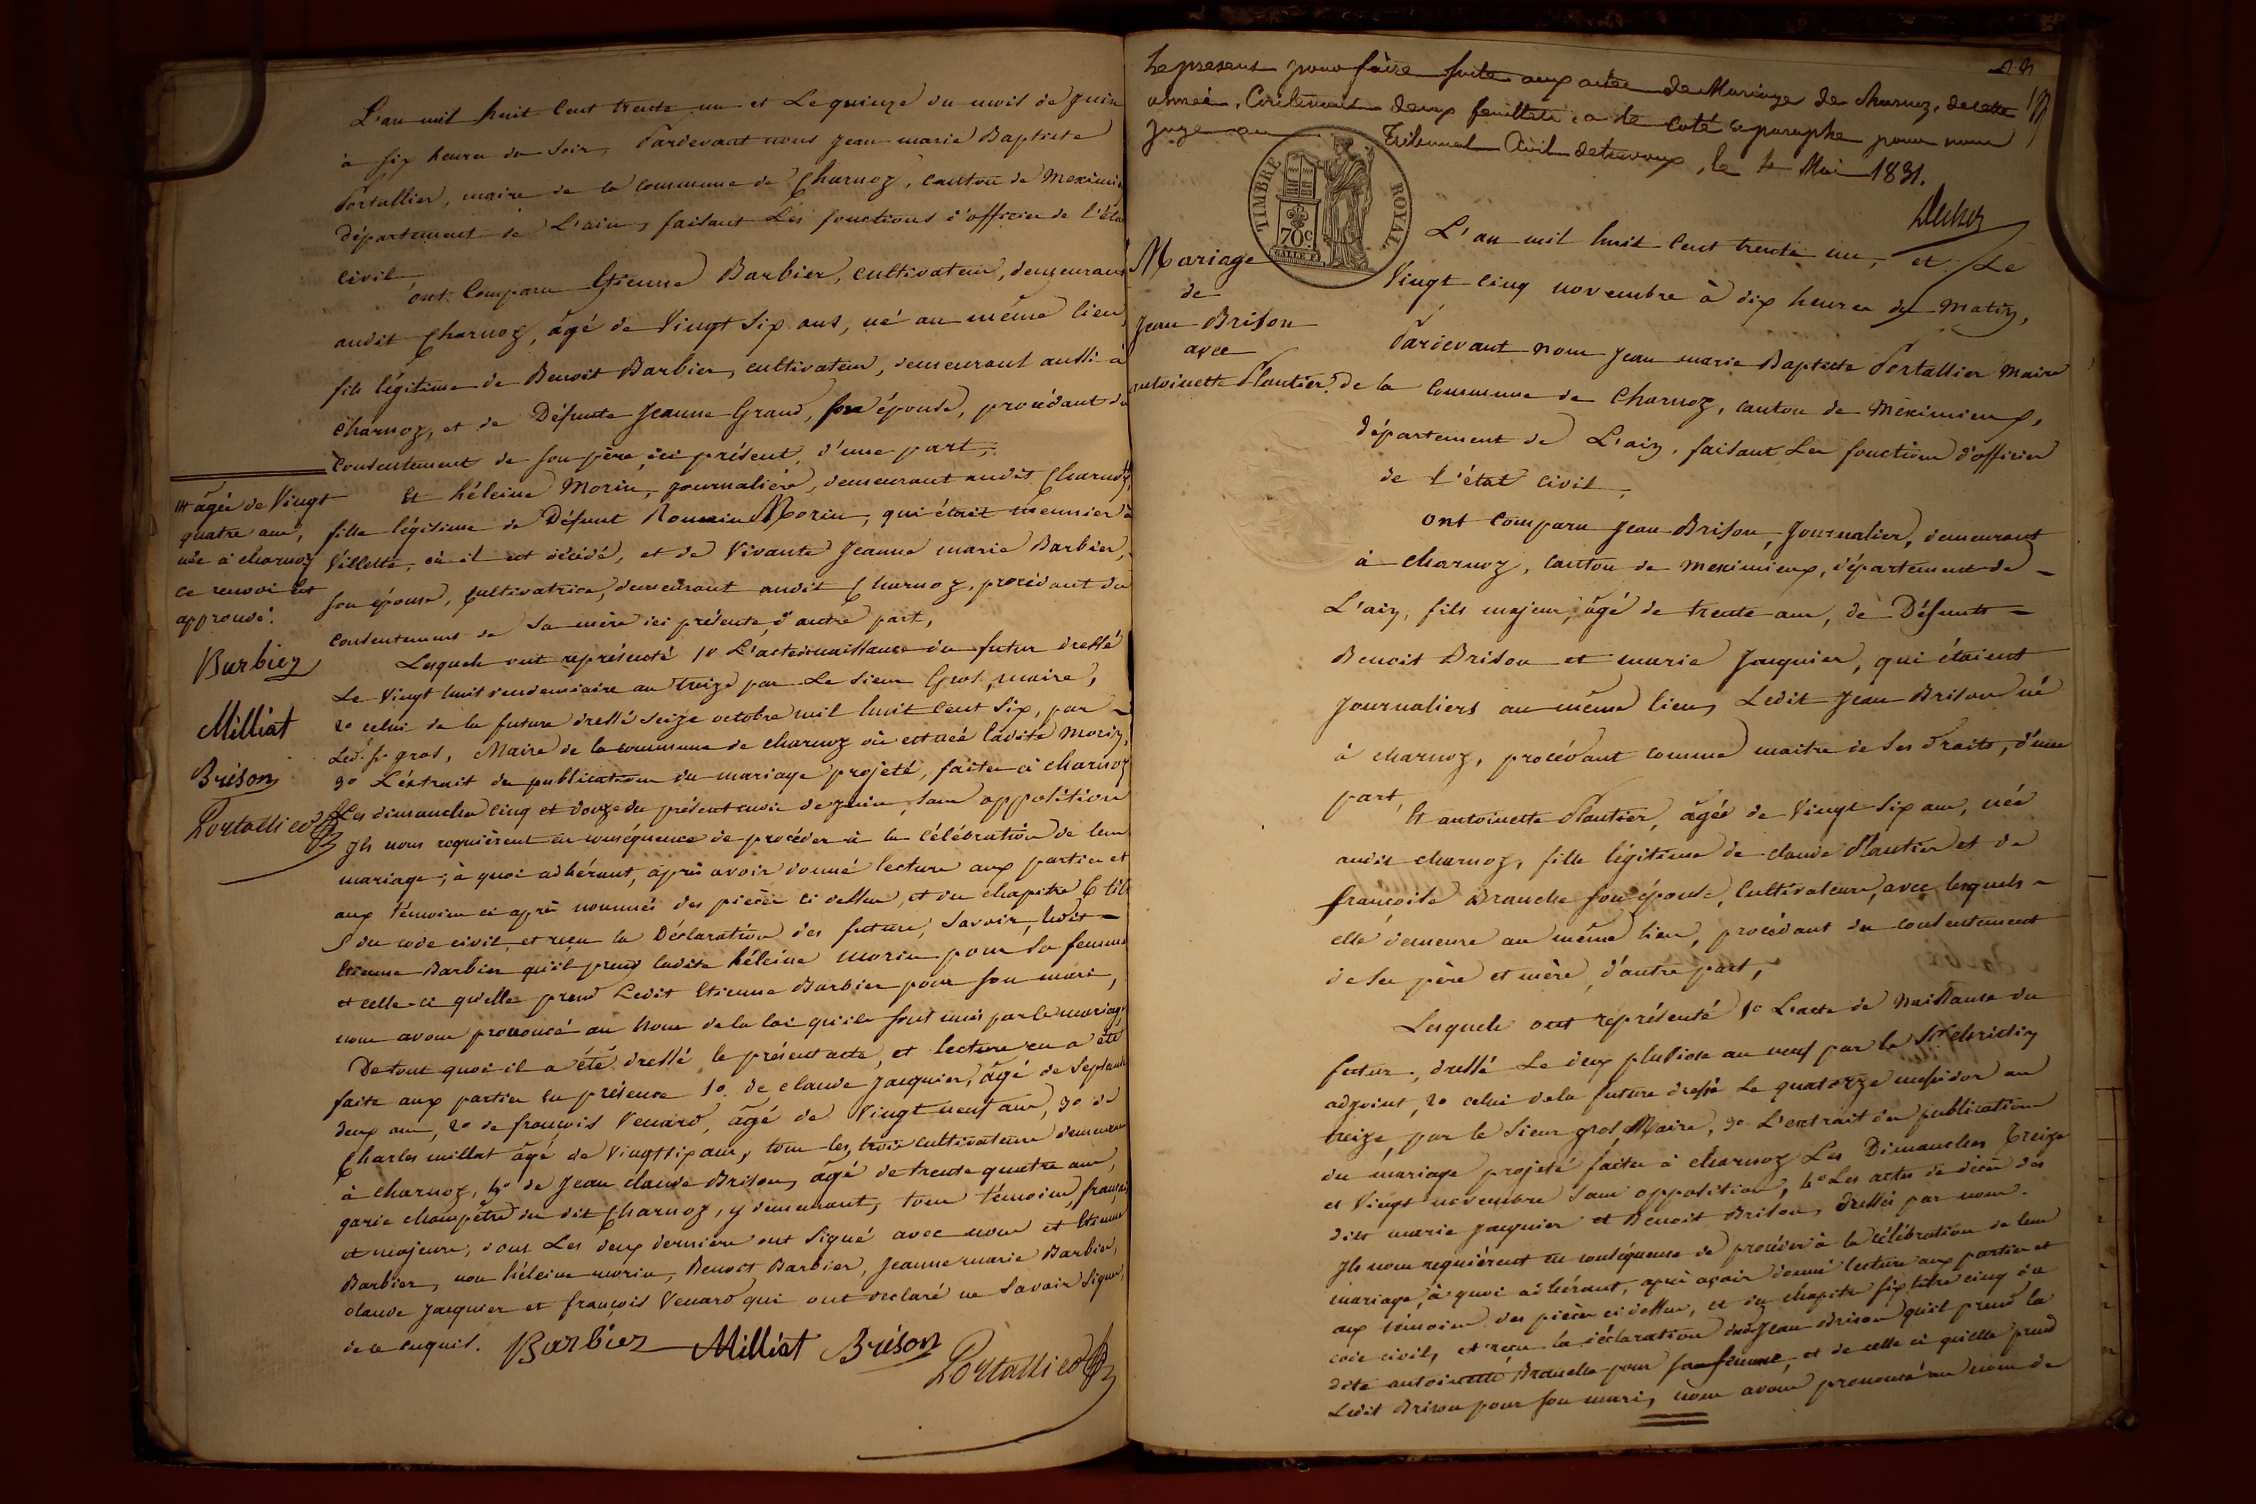 L'an mil huit Cent trente un et Le quinze du mois de Juin
à six heures du soir, Pardevant nous Jean marie Baptiste
Portallier, maire de la commune de Charnoz, canton de Meximieux
département de L'ain, faisant Les fonctions d'officier de l'état
civil,
ont Comparu Etienne Barbier, cultivateur, demeurant
audit Charnoz, âgé de Vingt Six ans, né au même lieu,
fils légitime de Benoit Barbier, cultivateur, demeurant aussi à
Charnoz, et de Défunte Jeanne Grand, son épouse, procédant du
Consentement de son père, ici présent, d'une part,
Et héleine Morin, journalière, demeurant audit Charnoz,
fille légitime de Défunt Romain Morin, qui était meunier à
Villette, où il est décédé, et de Vivante Jeanne marie Barbier,
son épouse, Cultivatrice, demeurant audit Charnoz, procédant du
consentement de sa mère ici présente, d'autre part,
Lesquels ont représenté 1o L'acte de naissance du futur dressé
Le Vingt huit vendemiaire an treize par Le Sieur Gros, maire,
2o celui de la future dressé seize octobre mil huit cent Six, par
Led. Sr. gros, Maire de la commune de charnoz où est née ladite Morin,
3o L'extrait de publications du mariage projeté, faites à charnoz
Les dimanches Cinq et douze du présent mois de juin, sans opposition
Ils nous requièrent en conséquence de procéder à la célébration de leur
mariage; à quoi adhérant, après avoir donné lecture aux parties et
aux témoins ci après nommés des pièces ci dessus, et du chapitre 6 tit.
5 du code civil, et reçu la Déclaration des futurs, Savoir, ledit
Etienne Barbier qu'il prend ladite héleine Morin pour sa femme
et celle-ci qu'elle prend Ledit Etienne Barbier pour son mari,
nous avons prononcé au Nom de la loi qu'ils sont unis par le mariage
De tout quoi il a été dressé le présent acte, et lecture en a été
faite aux parties en présence 1o. de claude Jacquier, âgé de Septante
deux ans, 2o de françois Venard, âgé de Vingt neuf ans, 3o de
Charles millat âgé de Vingt six ans, tous les trois cultivateurs demeurant
à charnoz, 4o de Jean claude Brison, âgé de trente quatre ans,
garde champêtre du dit Charnoz, y demeurant, tous témoins français
et majeurs, dont Les deux derniers ont Signé avec nous et Etienne
Barbier, non héleine morin, Benoit Barbier, Jeanne marie Barbier,
claude Jacquier et françois Venard qui ont déclaré ne Savoir Signer,
de ce enquis. Barbier Milliat Brison
Portallier
âgée de Vingt
quatre ans,
née à charnoz
ce renvoi est
approuvé.
Barbier
Milliat
Brison
Portallier
Le present pour faire suite aux actes de Mariage de Charnoz, de cette
année, Contenant deux feuillets, a été coté & paraphé pour nous
Juge au Tribunal Civil de trevoux, le 4 Mai 1831.
TIMBRE ROYAL
70c
Mariage
de
Jean Brison
avec
antoinette Plantier.
L'an mil huit Cent trente un, et Le
Vingt cinq novembre à dix heures du Matin,
Pardevant nous Jean marie Baptiste Portallier Maire
de la Commune de Charnoz, canton de Meximieux,
département de L'ain, faisant Les fonctions d'officier
de l'état civil,
ont Comparu Jean Brison, Journalier, demeurant
à charnoz, canton de meximieux, département de
L'ain, fils majeur, âgé de trente ans, de Défunts
Benoit Brison et marie Jacquier, qui étaient
Journaliers au même lieu, Ledit Jean Brison né
à charnoz, procédant comme maitre de ses Droits, d'une
part,
Et antoinette Plantier, âgée de Vingt Six ans, née
audit charnoz, fille légitime de claude Plantier et de
françoise Branche son épouse, Cultivateurs, avec lesquels
elle demeure au même lieu, procédant du consentement
de ses père et mère, d'autre part,
Lesquels ont représenté 1o L'acte de Naissance du
futur, dressé Le deux pluviose an neuf par le Sr.
adjoint, 2o celui de la future dressé Le quatorze messidor an
treize, par le Sieur gros Maire, 3o L'extrait des publications
du mariage projeté faites à charnoz Les Dimanches Treize
et Vingt novembre Sans opposition, 4o Les actes de décès des
dits marie Jacquier et Benoit Brison, dressés par nous.
Ils nous requièrent en conséquence de procéder à la célébration de leur
mariage, à quoi adhérant, après avoir donné lecture aux parties et
aux témoins des pièces ci dessus, et du chapitre six titre cinq du
code civil, et reçu la déclaration dudit Jean Brison qu'il prend la
dite antoinette Branche pour sa femme, et de celle ci qu'elle prend
Ledit Brison pour son mari, nous avons prononcé au nom de